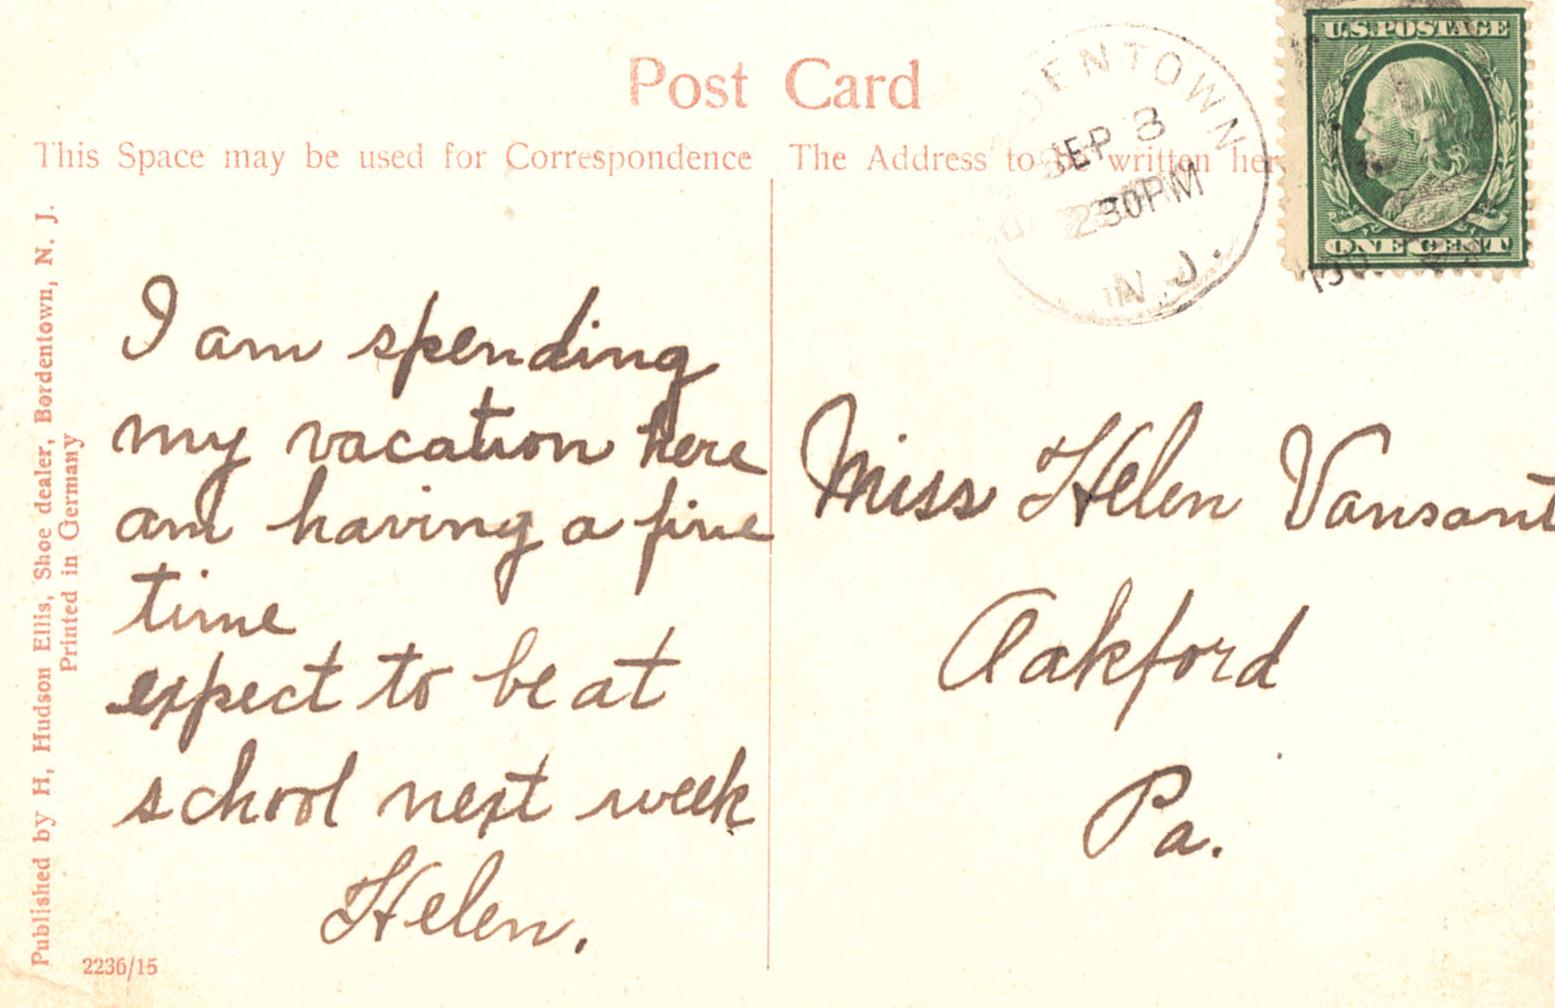 Post Card
This Space may be used for Correspondence
The Address to be written her
U.S.POSTAGE
ONE CENT
DENTOWN
SEP 8
230PM
N.J.
190
I am spending
my vacation here
am having a fine
time
expect to be at
school next week
Helen.
Miss Helen Vansant
Oakford
Pa.
Published by H, Hudson Ellis, Shoe dealer, Bordentown, N. J.
Printed in Germany
2236/15